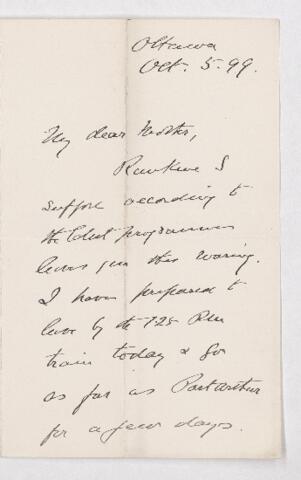 Ottawa
Oct. 5. 99.
My dear Mother,
Rankine I
suppose according to
the latest programme
leaves you this evening.
I have prepared to
leave by the 1.25 PM
train today & go
as far as Port Arthur
for a few days.